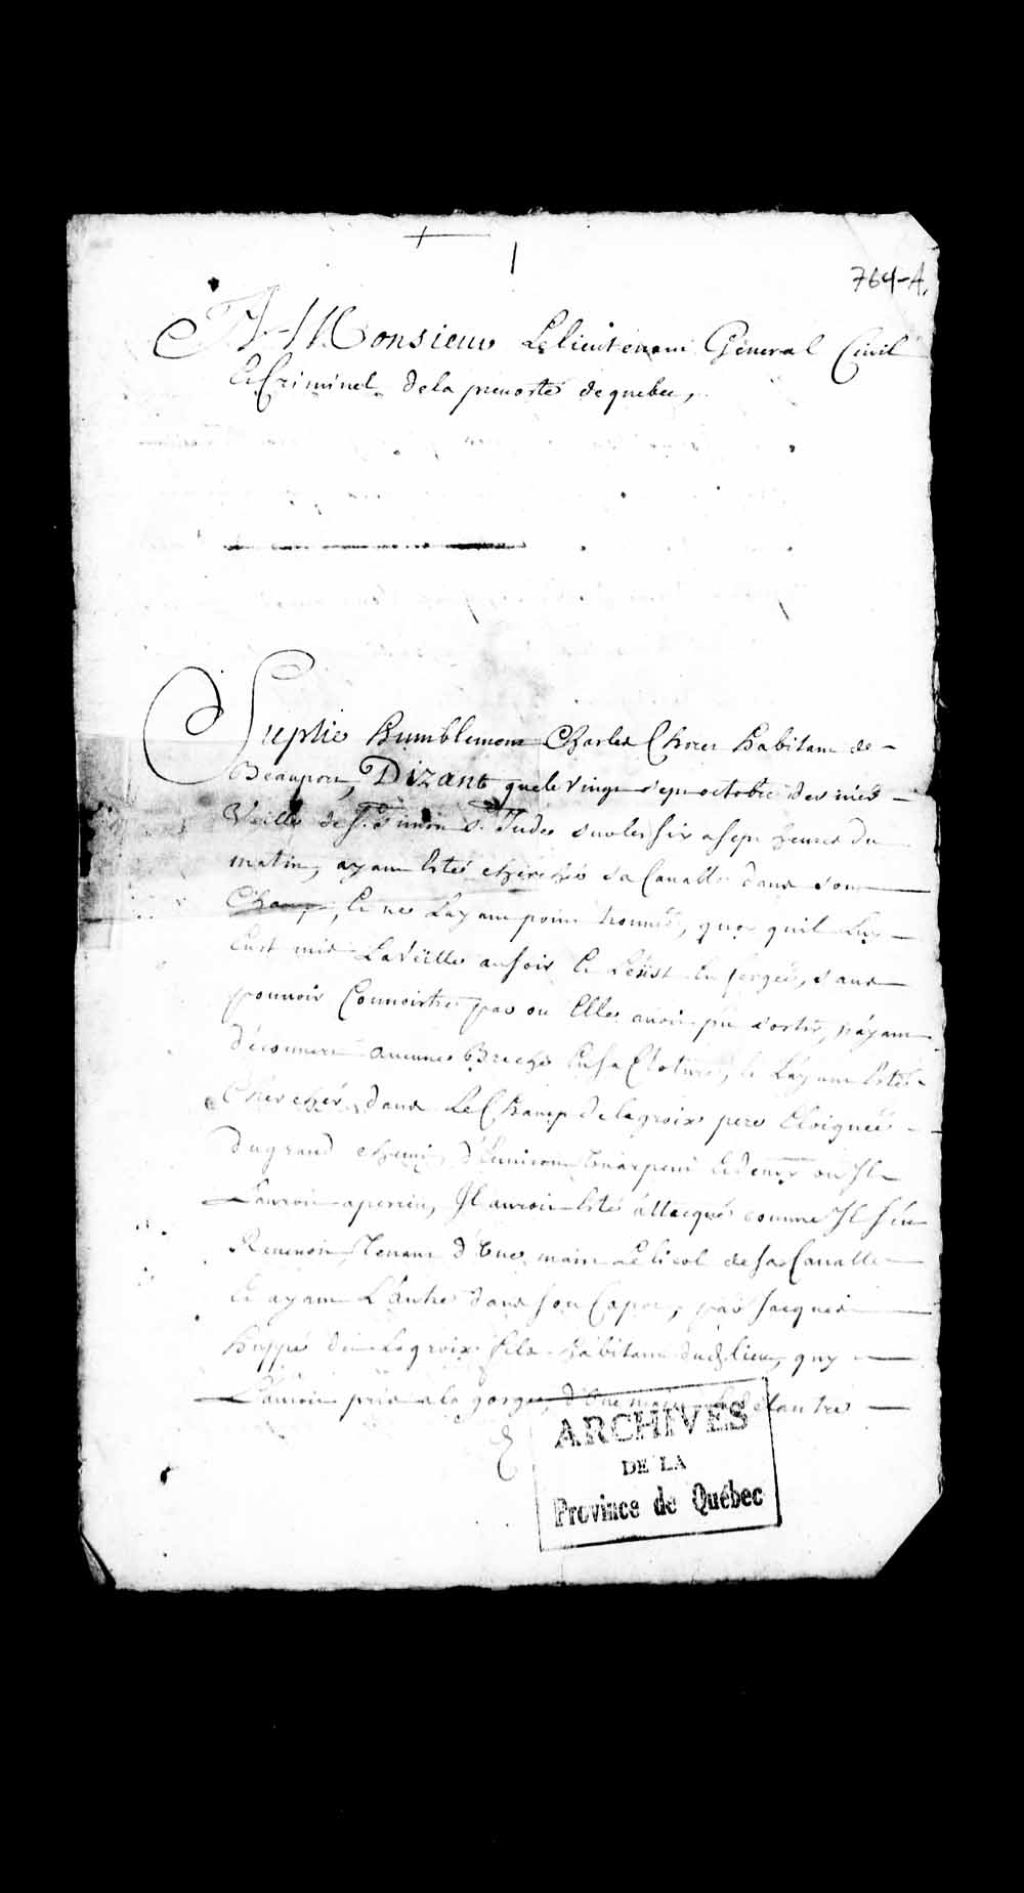 1
764-A.
A Monsieur Le lieutenant General Civil
Et Criminel de la prevosté de quebec,
Suplie humblement Charles Choret habitant de
Beauport, Dizant que le vingt sept octobre dernier
Veille de St. Simon St. Jude sur les six a sept heures du
matin, ayant esté cherché sa Cavalle dans son
Champ, Et ne Layant point trouvée, quoy quil Luy
Eust mis La Veille au soir Et Leust En fergée, sans
pouvoir Connoistre par ou Elle avoit pu sortir, n'ayant
découvert aucune Breche En sa Cloture, Et Layant esté
Chercher dans Le Champ de lagroix pere Eloignée
du grand chemin d'Environ Un arpent Et demy ou Il
Lauroit aperceu, Il auroit esté attacqué comme Il s'en
Revenoit, Tenant d'Une main Le licol de sa Cavalle
Et ayant L'autre dans son Capot, par Jacques
huppé dit Lagroix fils habitant dud. lieu, quy
Lauroit pris a la gorge, d'Une main Et de Lautre
ARCHIVES
DE LA
Province de Québec